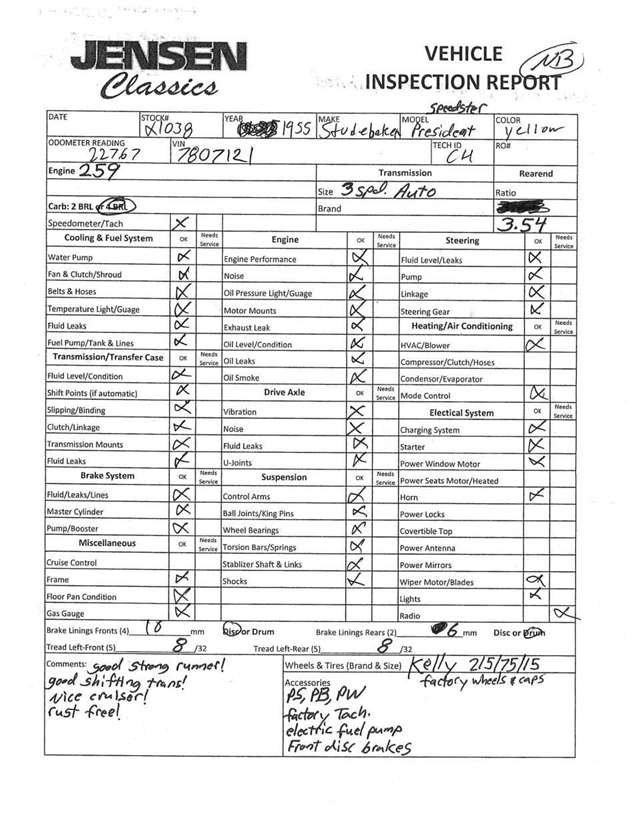 JENSEN
Classics
VEHICLE
INSPECTION REPORT
NB
DATE STOCK# X1038 YEAR 1955 MAKE Studebaker MODEL Speedster President COLOR yellow
ODOMETER READING 22767 VIN 7807121 TECH ID CH RO#
Engine 259 Transmission Rearend
Size 3 spd. Auto Ratio
Carb: 2 BRL or 4 BRL Brand 3.54
Speedometer/Tach X
Cooling & Fuel System OK Needs Service Engine OK Needs Service Steering OK Needs Service
Water Pump X Engine Performance X Fluid Level/Leaks X
Fan & Clutch/Shroud X Noise X Pump X
Belts & Hoses X Oil Pressure Light/Guage X Linkage X
Temperature Light/Guage X Motor Mounts X Steering Gear X
Fluid Leaks X Exhaust Leak X Heating/Air Conditioning OK Needs Service
Fuel Pump/Tank & Lines X Oil Level/Condition X HVAC/Blower X
Transmission/Transfer Case OK Needs Service Oil Leaks X Compressor/Clutch/Hoses
Fluid Level/Condition X Oil Smoke X Condensor/Evaporator
Shift Points (if automatic) X Drive Axle OK Needs Service Mode Control X
Slipping/Binding X Vibration X Electical System OK Needs Service
Clutch/Linkage X Noise X Charging System X
Transmission Mounts X Fluid Leaks X Starter X
Fluid Leaks X U-Joints X Power Window Motor X
Brake System OK Needs Service Suspension OK Needs Service Power Seats Motor/Heated
Fluid/Leaks/Lines X Control Arms X Horn X
Master Cylinder X Ball Joints/King Pins X Power Locks
Pump/Booster X Wheel Bearings X Covertible Top
Miscellaneous OK Needs Service Torsion Bars/Springs X Power Antenna
Cruise Control Stablizer Shaft & Links X Power Mirrors
Frame X Shocks X Wiper Motor/Blades X
Floor Pan Condition X Lights X
Gas Gauge X Radio X
Brake Linings Fronts (4) 18 mm Disc or Drum Brake Linings Rears (2) 6 mm Disc or Drum
Tread Left-Front (5) 8 /32 Tread Left-Rear (5) 8 /32
Comments: good strong runner! Wheels & Tires (Brand & Size) Kelly 215/75/15
good shifting trans! Accessories factory wheels & caps
Nice cruiser! PS, PB, PW
rust free! factory Tach.
electric fuel pump
Front disc brakes